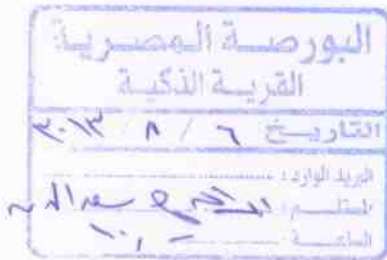 البورصة المصرية
القرية الذكية
التاريخ ٦ / ٨ / ٢٠١٣
البريد الوارد :
المستلم :
الساعة